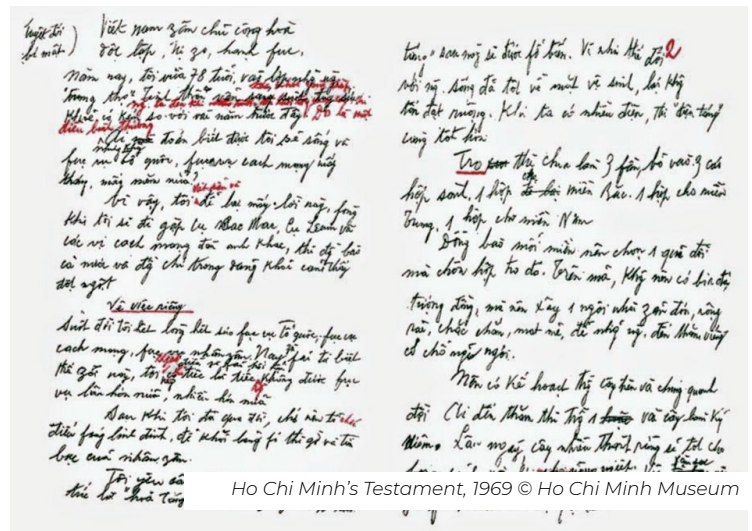 Tuyệt đối bí mật)
Việt nam zân chủ cộng hoà
độc lập, tự zo, hạnh fúc.
Năm nay, tôi vừa 78 tuổi, vào lớp những
"trung thọ" Tinh thần vẫn
khoẻ, so với vài năm trước đây. Đó là một
điều bình thường
Ai mà đoán biết được tôi sẽ sống và
fục vụ tổ quốc, fục vụ cách mạng mấy
tháng, mấy năm nữa?
Vì vậy, tôi để lại mấy lời này, fòng
khi tôi sẽ đi gặp cụ Các Mác, cụ Lênin và
các vị cách mạng đàn anh khác, thì đ/bào
cả nước và đ/chí trong đảng khỏi cảm thấy
đột ngột.
Về việc riêng
Suốt đời tôi hết lòng hết sức fục vụ tổ quốc, fục vụ
cách mạng, fục vụ nhân zân. Nay fải từ biệt
thế giới này, tôi tiếc là tiếc không được fục
vụ lâu hơn nữa, nhiều hơn nữa
Sau khi tôi đã qua đời, chớ nên tổ chức
điếu fúng linh đình, để khỏi lãng fí thì giờ và tiền
bạc của nhân zân.
Tôi yêu cầu
2
táng" sau này sẽ được fổ biến. Vì như thế đối
với ng. sống đã tốt về mặt vệ sinh, lại không
tốn đất ruộng. Khi ta có nhiều điện, thì "điện táng"
càng tốt hơn.
Tro thì chia làm 3 fần, bỏ vào 3 cái
hộp sành. 1 hộp cho miền Bắc. 1 hộp cho miền
Trung. 1 hộp cho miền Nam
Đồng bào mỗi miền nên chọn 1 quả đồi
mà chôn hộp tro đó. Trên mả, không nên có bia đá
tượng đồng, mà nên xây 1 ngôi nhà giản đơn, rộng
rãi, chắc chắn, mát mẻ, để những ng. đến thăm viếng
có chỗ nghỉ ngơi.
Nên có kế hoạch trồng cây trên và chung quanh
đồi. Ai đến thăm thì trồng 1 vài cây làm kỷ
niệm. Lâu ngày cây nhiều thành rừng sẽ tốt cho
Ho Chi Minh's Testament, 1969 © Ho Chi Minh Museum